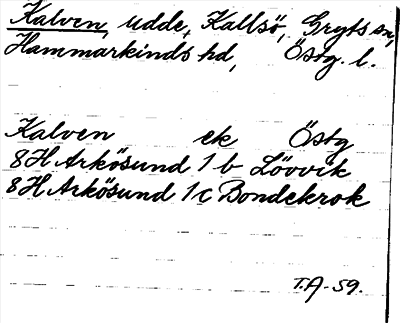 Kalven, udde, Kallsö, Gryts sn,
Hammarkinds hd, Östg. l.
Kalven ek Östg
8H Arkösund 1 b Lövvik
8H Arkösund 1 c Bondekrok
T.A-59.